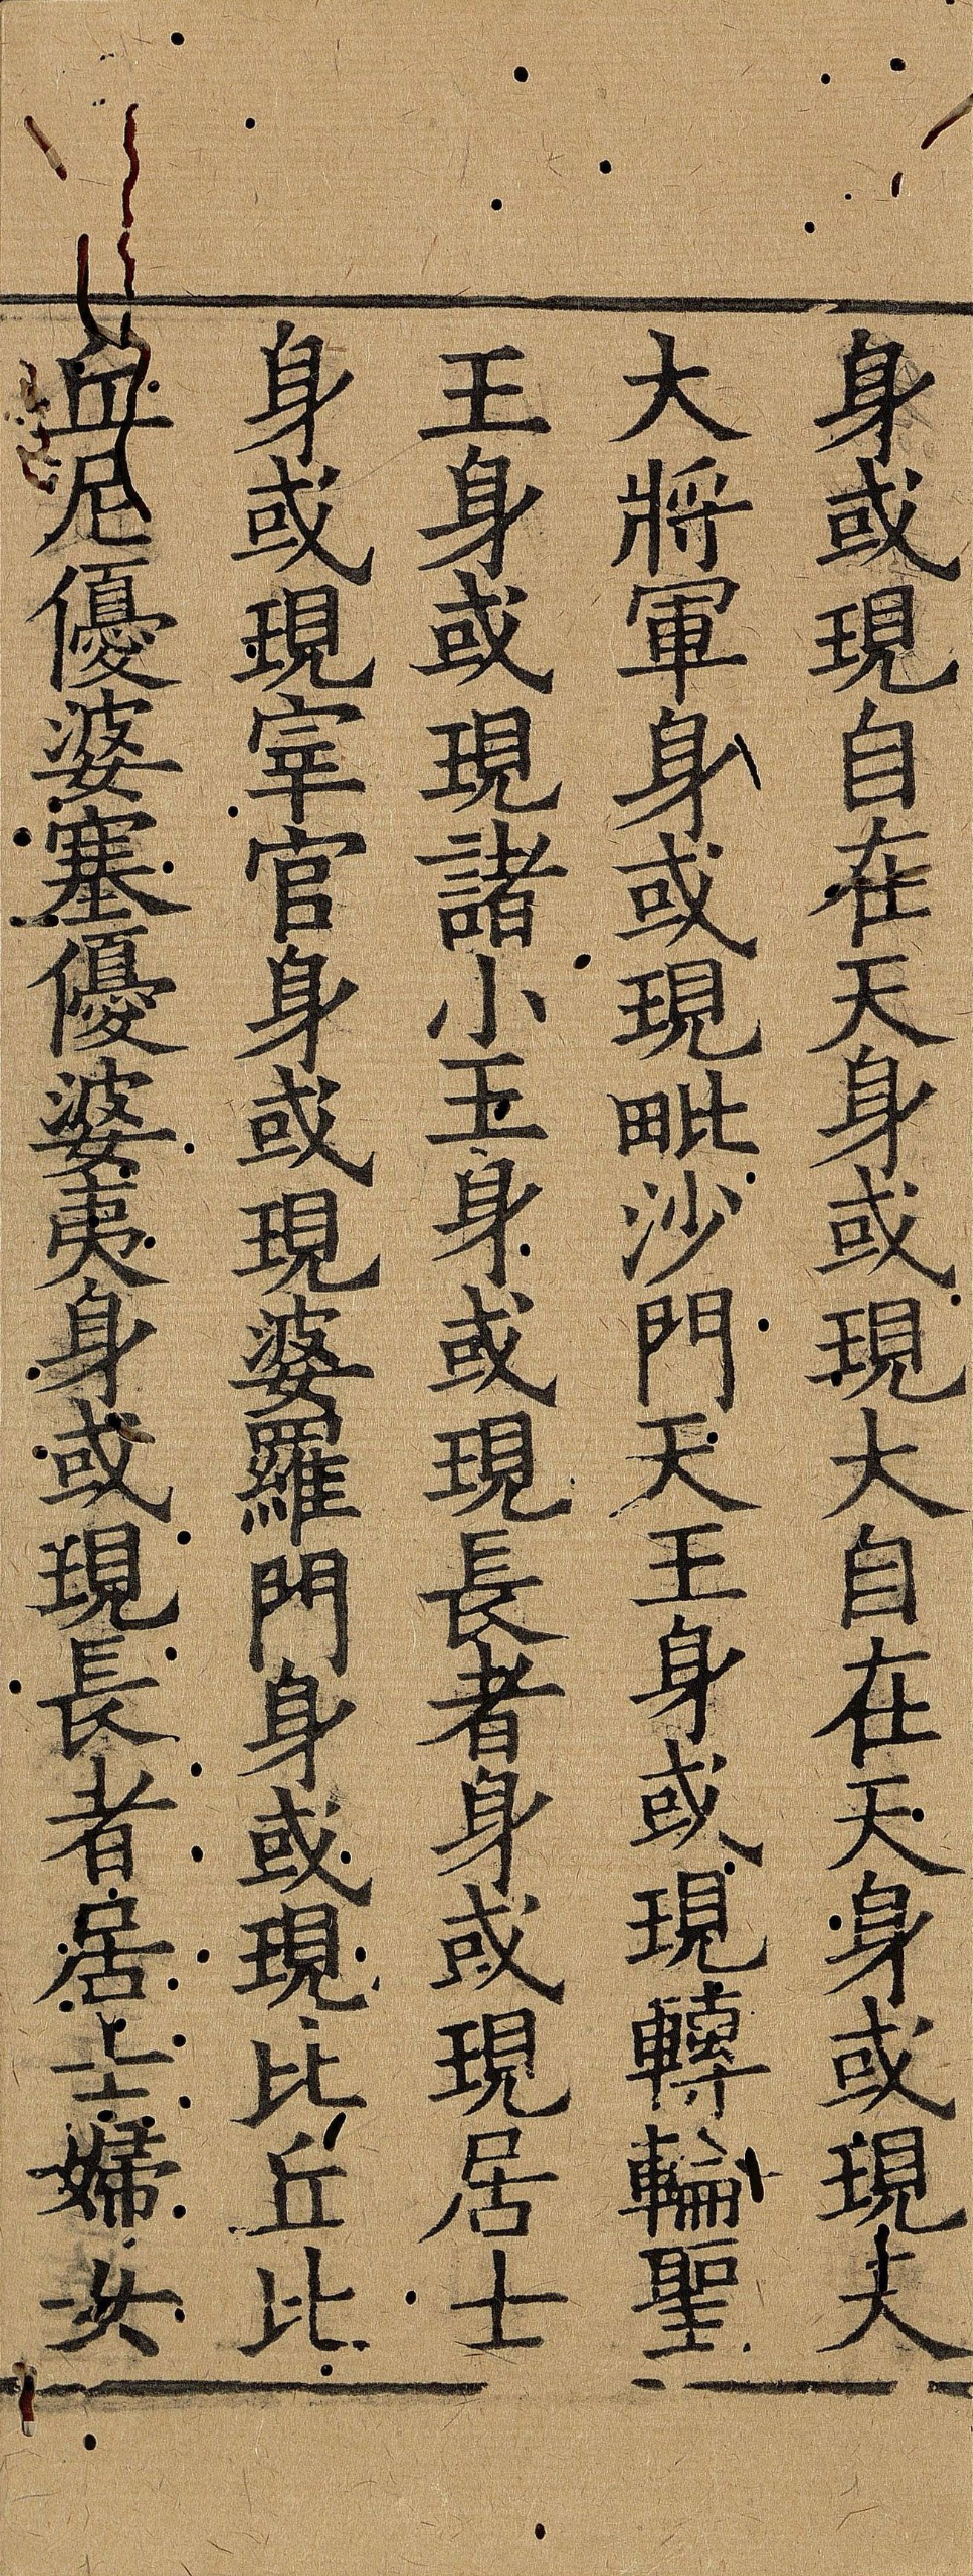 身或現自在天身或現大自在天身或現天
大將軍身或現毗沙門天王身或現轉輪聖
王身或現諸小王身或現長者身或現居士
身或現宰官身或現婆羅門身或現比丘比
丘尼優婆塞優婆夷身或現長者居士婦女